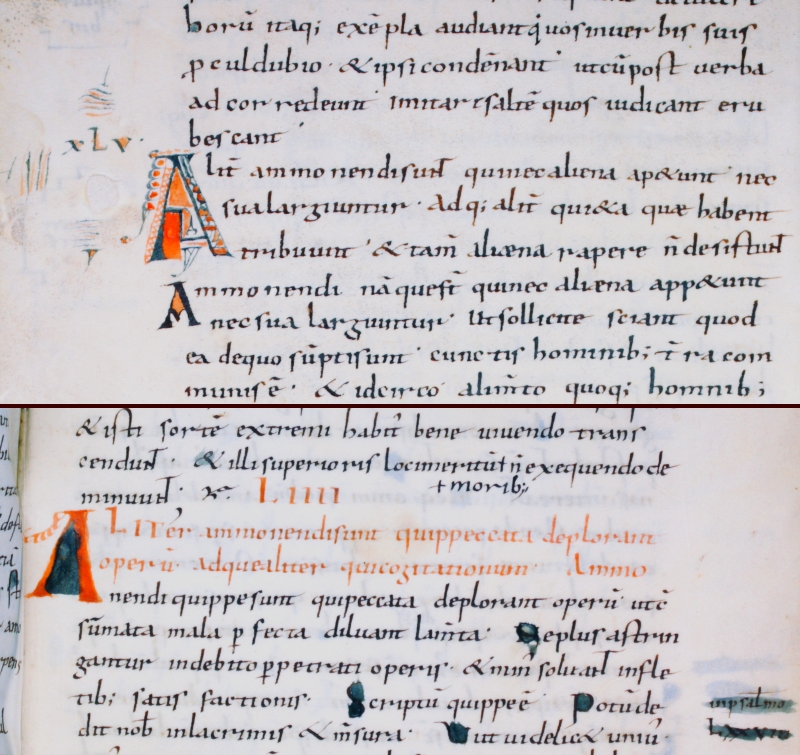 horū itaq; exēpla audiant quos inuerbis suis
p culdubio · & ipsi condēnant · ut cū post uerba
ad cor redeunt imitari saltē quos iudicant eru
bescant
xLv·
Alit̄ ammonendi sunt qui nec aliena ap&unt nec
sua larguntur · Adq; alit̄ qui & ea quæ habent
tribuunt · & tam̄ aliæna rapere n̄ desistunt
Ammonendi nāque s̄t qui nec aliena app&unt
nec sua larguntur · Ut sollicite sciant quod
ea de quo sūpti sunt cunctis hominib; t̄ra com
munis ē · & idcirco alim̄to quoq; hominib;
& isti sortē extremi habit̄ bene uiuendo trans
cendunt · & illi superioris loci meritū t n̄ exequendo de
minuunt · LIIII + morib;
ALITer ammonendi sunt qui peccata deplorant
operū adque aliter qui cogitationum Ammo
nendi quippe sunt qui peccata deplorant operū utc̄
sūmata mala pfecta diluant lam̄ta · Ne plus astrin
gantur in debito ppetrati operis · & min̄ soluant infle
tib; satis factionis · Scriptū quippe ē · Potū de
dit nob̄ in lacrimis & m̄sura · Ut uidelic& uniu·
in psalmo
Lxxvīīīī